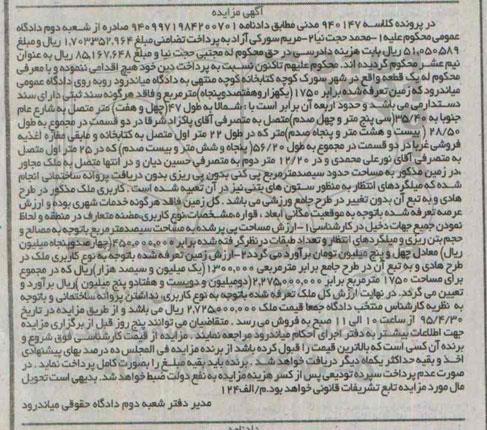 آگهی مزایده
در پرونده کلاسه ۹۴۰۱۴۷ مدنی مطابق دادنامه ۹۴۰۹۹۷۱۹۸۴۲۰۰۷۰۱ صادره از شعبه دوم دادگاه
عمومی محکوم علیه ۱-محمد حجت نیا ۲-مریم سورکی آزاد به پرداخت تضامنی مبلغ ۱.۷۰۳۳۵۲.۹۶۴ ریال و مبلغ
۵۱.۰۵۰۵۸۹ ریال بابت هزینه دادرسی در حق محکوم له مجتبی حجت نیا و مبلغ ۸۵.۱۶۷۶۴۸ ریال به عنوان
نیم عشر محکوم گردیده اند. محکوم علیهم تاکنون نسبت به پرداخت دین خود هیچ اقدامی ننموده و با معرفی
محکوم له یک قطعه واقع در شهر سورک کوچه کتابخانه کوچه منتهی به دادگاه میاندرود روبه روی دادگاه عمومی
میاندرود که زمین تعرفه شده برابر ۱۷۵۰ (یکهزار و هفتصد و پنجاه) متر مربع و فاقد هرگونه سند ثبتی دارای سند
دستداد می باشد و حدود اربعه آن برابر است با: شمالا به طول ۴۷ (چهل و هفت) متر متصل به شارع عام
جنوبا به ۳۵/۴۰ (سی پنج متر و چهل صدم) متصل به متصرفی آقای پاکزاد شرقا در دو قسمت در مجموع به طول
۲۸/۵۰ (بیست و هشت متر و پنجاه صدم) متر که در طول ۲۲ متر اول متصل به کتابخانه و مابقی مغازه اغذیه
فروشی غربا در دو قسمت در مجموع به طول ۵۶/۲۰ (پنجاه و شش متر و بیست صدم) که در ۲۵ متر اول متصل
به متصرفی آقای نورعلی محمدی و در ۱۲/۲۰ متر دوم به متصرفی حسین دیان و در انتها متصل به ملک مجاور
،در زمین مذکور به مساحت حدود سیصد مترمربع پی کنی بدون پی ریزی بدون دریافت پروانه ساختمانی انجام
شده که میلگردهای انتظار به منظور ستون های بتنی نیز در آن تعبیه شده است. کاربری ملک مذکور در طرح
هادی و به تبع آن بدون تغییر در طرح جامع ورزشی می باشد. کل زمین فاقد هرگونه خدمات شهری بوده و ارزش
عرصه تعرفه شده باتوجه به موقعیت مکانی ابعاد، قواره مشخصات نوع کاربری مضنه متعارف در منطقه و لحاظ
نمودن جمیع جهات دخیل در کارشناسی ۱-ارزش مساحت پی پر شده به مساحت سیصد متر مربع باتوجه به مصالح و
حجم بتن ریزی و میلگردهای انتظار و تعداد طبقات در نظر گرفته شده برابر ۴۵۰.۰۰۰.۰۰۰ (چهارصد و پنجاه میلیون
ریال) معادل چهل و پنج میلیون تومان برآورد می گردد ۲-ارزش زمین تعرفه شده باتوجه به نوع کاربری ملک در
طرح هادی و به تبع آن در طرح جامع برابر مترمربعی ۱.۳۰۰.۰۰۰ (یک میلیون و سیصد هزار) ریال که در مجموع
برای مساحت ۱۷۵۰ مترمربع برابر ۲.۲۷۵.۰۰۰.۰۰۰ (دو میلیون و دویست و هفتاد و پنج میلیون) ریال برآورد و
تعیین می گردد. در نهایت ارزش کل ملک تعرفه شده باتوجه به نوع کاربری، نداشتن پروانه ساختمانی و باتوجه
به نظریه کارشناس منتخب دادگاه جمعا قیمت ملک ۲.۷۲۵.۰۰۰.۰۰۰ ریال می باشد و از طریق مزایده در تاریخ
۹۵/۴/۳۰ از ساعت ۱۰ الی ۱۱ صبح به فروش می رسد. متقاضیان می توانند پنج روز قبل از برگزاری مزایده
جهت اطلاعات بیشتر به دفتر اجرای احکام میاندرود مراجعه نمایند. مزایده از قیمت کارشناسی فوق شروع و
برنده آن کسی است که بالاترین قیمت را قبول کرده باشد از برنده مزایده فی المجلس ده درصد بهای پیشنهادی
اخذ و بقیه حداکثر یکماه دیگر دریافت خواهد شد. برنده باید بقیه مبلغ را بصورت کامل پرداخت نماید. در
صورت عدم پرداخت سپرده تودیعی پس از کسر هزینه مزایده به نفع دولت ضبط خواهد شد. بدیهی است تحویل
مال مورد مزایده تابع تشریفات قانونی خواهد بود. م/الف ۱۲۴
مدیر دفتر شعبه دوم دادگاه حقوقی میاندرود